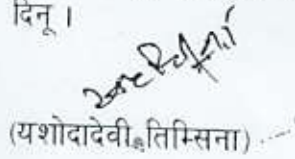 दिनू ।
(यशोदादेवी तिम्सिना)